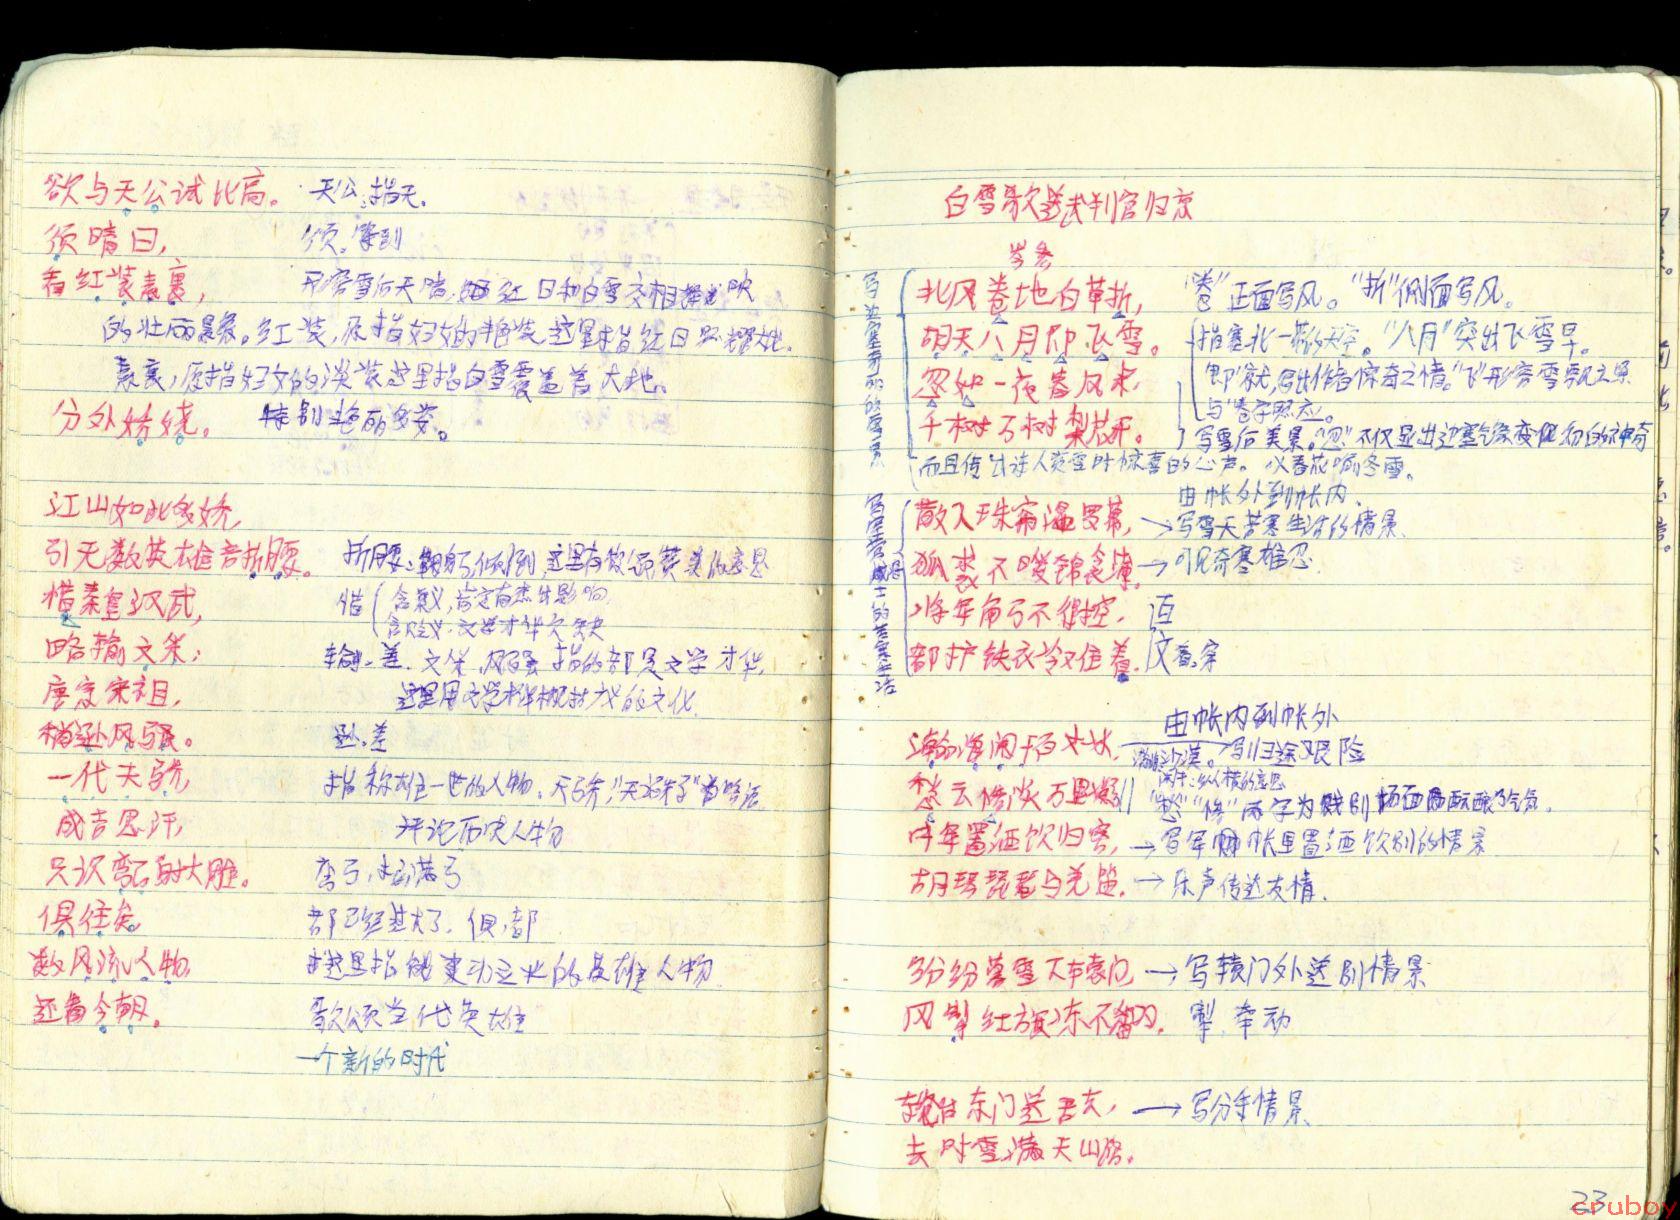 欲与天公试比高。 天公:指天。
须晴日, 须。等到
看红装素裹, 形容雪后天晴,红日和白雪交相辉映
的壮丽景象。红装,原指妇女的艳装,这里指红日照耀大地.
素裹,原指妇女的淡装这里指白雪覆盖着大地。
分外娇娆。 特别艳丽多姿。
江山如此多娇,
引无数英雄竞折腰。 折腰:鞠躬倾倒,这里有称颂赞美的意思
惜秦皇汉武, 惜
含义,肯定有杰出影响,
含贬义,文学才华欠缺
略输文采; 输。差. 文采,风骚指的都是文学才华,
唐宗宋祖, 这里用文学来概括广义的文化.
稍逊风骚。 逊。差
一代天骄, 指称雄一世的人物. 天骄,"天之骄子"省略语
成吉思汗, 评论历史人物
只识弯弓射大雕。 弯弓,拉满弓
俱往矣, 都已经过去了. 俱,都
数风流人物, 这里指能建功立业的英雄人物.
还看今朝。 歌颂当代英雄
一个新的时代
白雪歌送武判官归京
岑参
北风卷地白草折, "卷"正面写风。"折"侧面写风。
胡天八月即飞雪。 指塞北一带的天空。"八月"突出飞雪早。
忽如一夜春风来, "即"就,写出作者惊奇之情。"飞"形容雪飘之景
与"卷"字照应。
千树万树梨花开。 写雪后美景。"忽"不仅显出边塞气象变化的神奇
而且传出诗人赏雪时惊喜的心声。以春花喻冬雪。
由帐外到帐内.
散入珠帘湿罗幕, →写雪天苦寒生活的情景.
狐裘不暖锦衾薄。 →可见奇寒难忍.
将军角弓不得控, 互
都护铁衣冷难着. 文 着。穿
由帐内到帐外
瀚海阑干百丈冰, 瀚海:沙漠。 写归途艰险
阑干:纵横的意思
愁云惨淡万里凝 "愁""惨"两字为饯别场面酝酿了气氛.
中军置酒饮归客, →写军帐里置酒饮别的情景
胡琴琵琶与羌笛. →乐声传送友情.
纷纷暮雪下辕门, →写辕门外送别情景
风掣红旗冻不翻. 掣.牵动
轮台东门送君去, →写分手情景.
去时雪满天山路。
23
cruboy